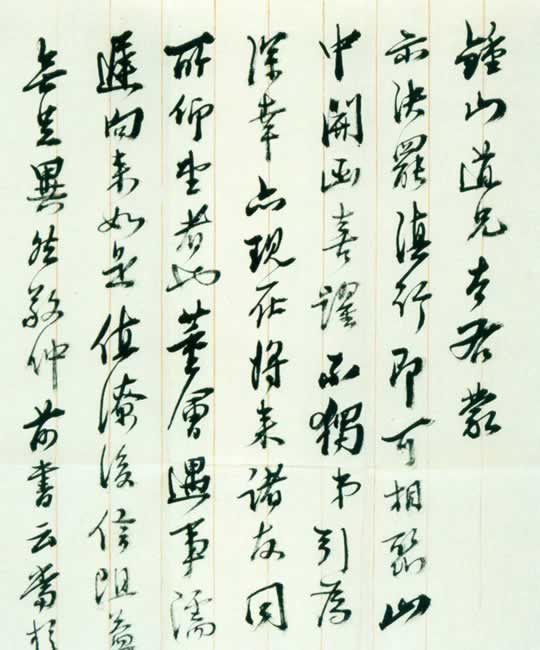 鍾山道兄左右蒙
示決罷滇行即可相聚山
中開函喜躍不獨弟引為
深幸亦現在將來諸友同
所仰望者也董會遇事濡
遲向來如是值潦後信阻益
無足異然敬仲前書云當於